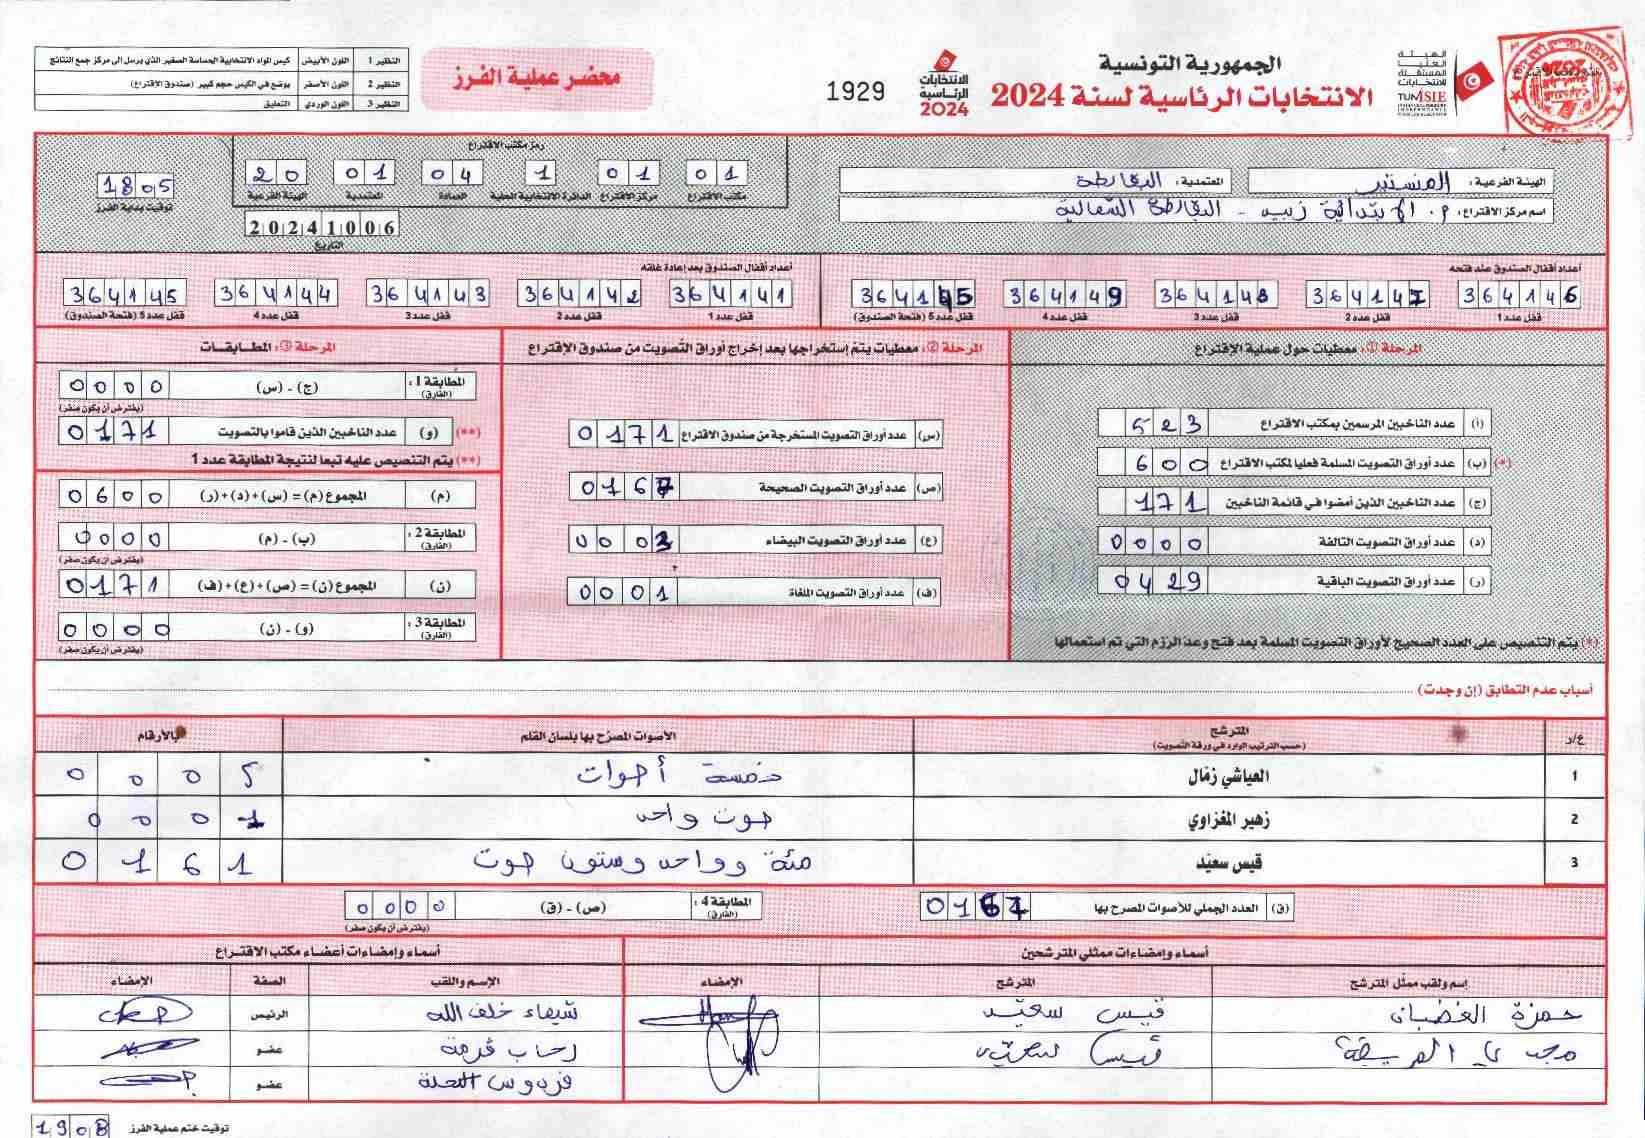 الجمهورية التونسية
الانتخابات الرئاسية لسنة 2024
الهيئة العليا المستقلة للانتخابات
TUNISIE
الانتخابات الرئاسية 2024
1929
محضر عملية الفرز
النظير 1 اللون الأبيض كيس المواد الانتخابية الحساسة الصغير الذي يرسل الى مركز جمع النتائج
النظير 2 اللون الأصفر يوضع في الكيس حجم كبير (صندوق الاقتراع)
النظير 3 اللون الوردي التعليق
الهيئة الفرعية: المنستير
المعتمدية: البقالطة
اسم مركز الاقتراع: م. الابتدائية زبيد - البقالطة الشمالية
رمز مكتب الاقتراع
01 01 1 04 01 20
مكتب الاقتراع مركز الاقتراع الدائرة الانتخابية المحلية العمادة المعتمدية الهيئة الفرعية
20241006
التاريخ
1805
توقيت بداية الفرز
أعداد أقفال الصندوق عند فتحه
364146 364147 364148 364149 364145
قفل عدد 1 قفل عدد 2 قفل عدد 3 قفل عدد 4 قفل عدد 5 (فتحة الصندوق)
أعداد أقفال الصندوق بعد إعادة غلقه
364141 364142 364143 364144 364145
قفل عدد 1 قفل عدد 2 قفل عدد 3 قفل عدد 4 قفل عدد 5 (فتحة الصندوق)
المرحلة ①: معطيات حول عملية الإقتراع
(أ) عدد الناخبين المرسمين بمكتب الاقتراع 523
(*) (ب) عدد أوراق التصويت المسلمة فعليا لمكتب الاقتراع 600
(ج) عدد الناخبين الذين أمضوا في قائمة الناخبين 171
(د) عدد أوراق التصويت التالفة 0000
(ر) عدد أوراق التصويت الباقية 0429
(*) يتم التنصيص على العدد الصحيح لأوراق التصويت المسلمة بعد فتح وعد الرزم التي تم استعمالها
المرحلة ②: معطيات يتم إستخراجها بعد إخراج أوراق التصويت من صندوق الإقتراع
(س) عدد أوراق التصويت المستخرجة من صندوق الاقتراع 0171
(ص) عدد أوراق التصويت الصحيحة 0167
(ع) عدد أوراق التصويت البيضاء 0003
(ف) عدد أوراق التصويت الملغاة 0001
المرحلة ③: المطابقات
المطابقة 1: (الفارق) (ج) - (س) 0000
(يفترض أن يكون صفر)
(**) (و) عدد الناخبين الذين قاموا بالتصويت 0171
(**) يتم التنصيص عليه تبعا لنتيجة المطابقة عدد 1
(م) المجموع (م) = (س)+(د)+(ر) 0600
المطابقة 2: (الفارق) (ب) - (م) 0000
(يفترض أن يكون صفر)
(ن) المجموع (ن) = (ص)+(ع)+(ف) 0171
المطابقة 3: (الفارق) (و) - (ن) 0000
(يفترض أن يكون صفر)
أسباب عدم التطابق (إن وجدت)
ع/د المترشح (حسب الترتيب الوارد في ورقة التصويت) الأصوات المصرح بها بلسان القلم بالأرقام
1 العياشي زمّال خمسة أصوات 0005
2 زهير المغزاوي صوت واحد 0001
3 قيس سعيّد مئة وواحد وستون صوت 0161
(ق) العدد الجملي للأصوات المصرح بها 0167
المطابقة 4: (الفارق) (ص) - (ق) 0000
(يفترض أن يكون صفر)
أسماء وإمضاءات ممثلي المترشحين
إسم ولقب ممثل المترشح المترشح الإمضاء
حمزة الغضبان قيس سعيّد
مجدي قيس سعيّد
أسماء وإمضاءات أعضاء مكتب الاقتراع
الإسم واللقب الصفة الإمضاء
شيماء خلف الله الرئيس
رحاب قرمة عضو
فردوس عضو
توقيت ختم عملية الفرز 1908